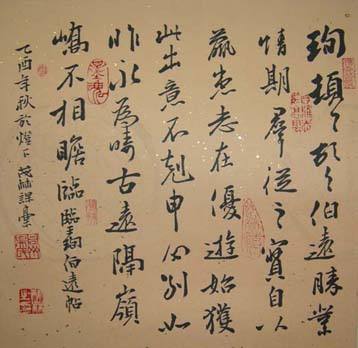 珣頓々首々伯遠勝業
情期群從之寶自以
羸患志在優遊始獲
此出意不剋申分別如
昨永為疇古遠隔嶺
嶠不相瞻臨 臨王珣伯遠帖
乙酉年秋於燈下